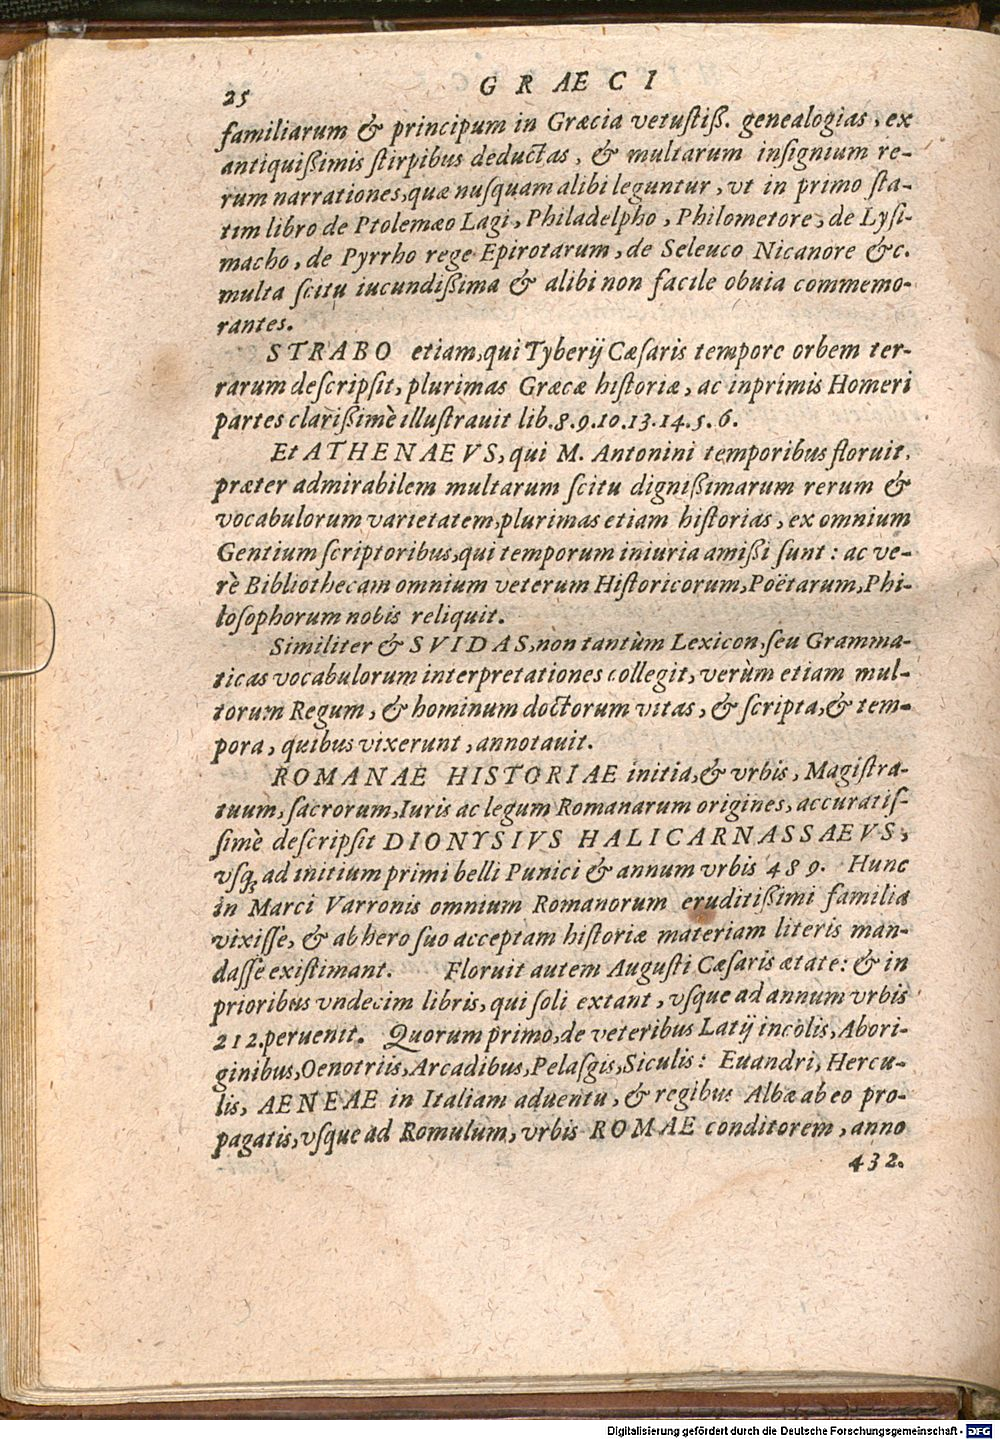 25 GRÆCI
familiarum & principum in Græcia vetustiß. genealogias, ex
antiquißimis stirpibus deductas, & multarum insignium re-
rum narrationes, quæ nusquam alibi leguntur, vt in primo sta-
tim libro de Ptolemæo Lagi, Philadelpho, Philometore, de Lysi-
macho, de Pyrrho rege Epirotarum, de Seleuco Nicanore &c.
multa scitu iucundißima & alibi non facile obuia commemo-
rantes.
STRABO etiam, qui Tyberij Cæsaris tempore orbem ter-
rarum descripsit, plurimas Græcæ historiæ, ac inprimis Homeri
partes clarißimè illustrauit lib.8.9.10.13.14.5.6.
Et ATHENAEVS, qui M. Antonini temporibus floruit,
præter admirabilem multarum scitu dignißimarum rerum &
vocabulorum varietatem, plurimas etiam historias, ex omnium
Gentium scriptoribus, qui temporum iniuria amißi sunt: ac ve-
rè Bibliothecam omnium veterum Historicorum, Poëtarum, Phi-
losophorum nobis reliquit.
Similiter & SVIDAS, non tantùm Lexicon, seu Gramma-
ticas vocabulorum interpretationes collegit, verùm etiam mul-
torum Regum, & hominum doctorum vitas, & scripta, & tem-
pora, quibus vixerunt, annotauit.
ROMANAE HISTORIAE initia, & vrbis, Magistra-
tuum, sacrorum, Iuris ac legum Romanarum origines, accuratis-
simè descripsit DIONYSIVS HALICARNASSAEVS,
vsq; ad initium primi belli Punici & annum vrbis 489. Hunc
in Marci Varronis omnium Romanorum eruditißimi familia
vixisse, & ab hero suo acceptam historiæ materiam literis man-
dasse existimant. Floruit autem Augusti Cæsaris ætate: & in
prioribus vndecim libris, qui soli extant, vsque ad annum vrbis
212. peruenit. Quorum primo, de veteribus Latij incolis, Abori-
ginibus, Oenotriis, Arcadibus, Pelasgis, Siculis: Euandri, Hercu-
lis, AENEAE in Italiam aduentu, & regibus Albæ ab eo pro-
pagatis, vsque ad Romulum, vrbis ROMAE conditorem, anno
432.
Digitalisierung gefördert durch die Deutsche Forschungsgemeinschaft - DFG